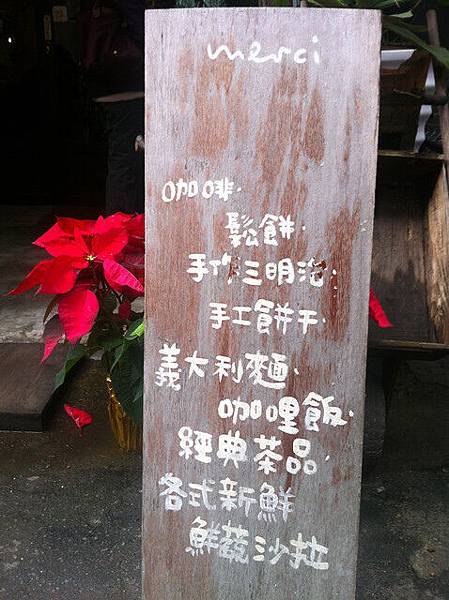 merci
咖啡·
鬆餅·
手作三明治·
手工餅干·
義大利麵·
咖哩飯·
經典茶品·
各式新鮮
鮮蔬沙拉